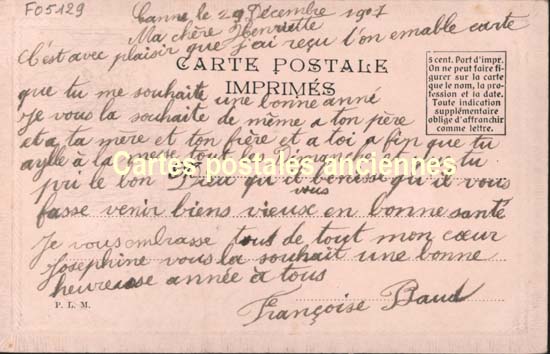 FO5129
Canne, le 29 Décembre 1907
Ma chère Henriette
C'est avec plaisir que j'ai reçu l'on emable carte
CARTE POSTALE
IMPRIMÉS
5 cent. Port d'impr.
On ne peut faire fi-
gurer sur la carte
que le nom, la pro-
fession et la date.
Toute indication
supplémentaire
oblige d'affranchir
comme lettre.
que tu me souhaite une bonne anné
Je vous la souhaite de même a ton père
et a ta mère et ton frère et a toi a fin que tu
aylle à la messe tou
Cartes postales anciennes
pri le bon Dieu qu'il bénisse qu'il vous
vous
fasse venir biens vieux en bonne santé
Je vous embrasse tout de tout mon cœur
Joséphine vous la souhait une bonne
heureuse année à tous
P. L. M.
Françoise Baud